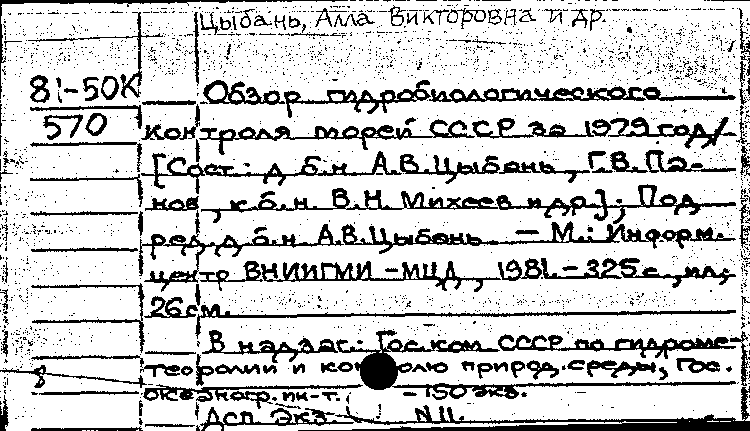 Цыбань, Алла Викторовна и др.
81-50К Обзор гидробиологического
570 контроля морей СССР за 1979 год/
[Сост.: д. б. н. А.В.Цыбань, Г.В.Па-
нов, к.б.н. В.Н. Михеев и др.]; Под
ред. д. б. н. А.В.Цыбань. — М.: Информ.
центр ВНИИГМИ-МЦД, 1981. - 325 с., ил;
26 см.
В надзаг.: Гос. ком. СССР по гидроме-
8 теорологии и природ. среды, Гос.
океаногр. ин-т. - 150 экз.
Дсп. Экз. N 11.